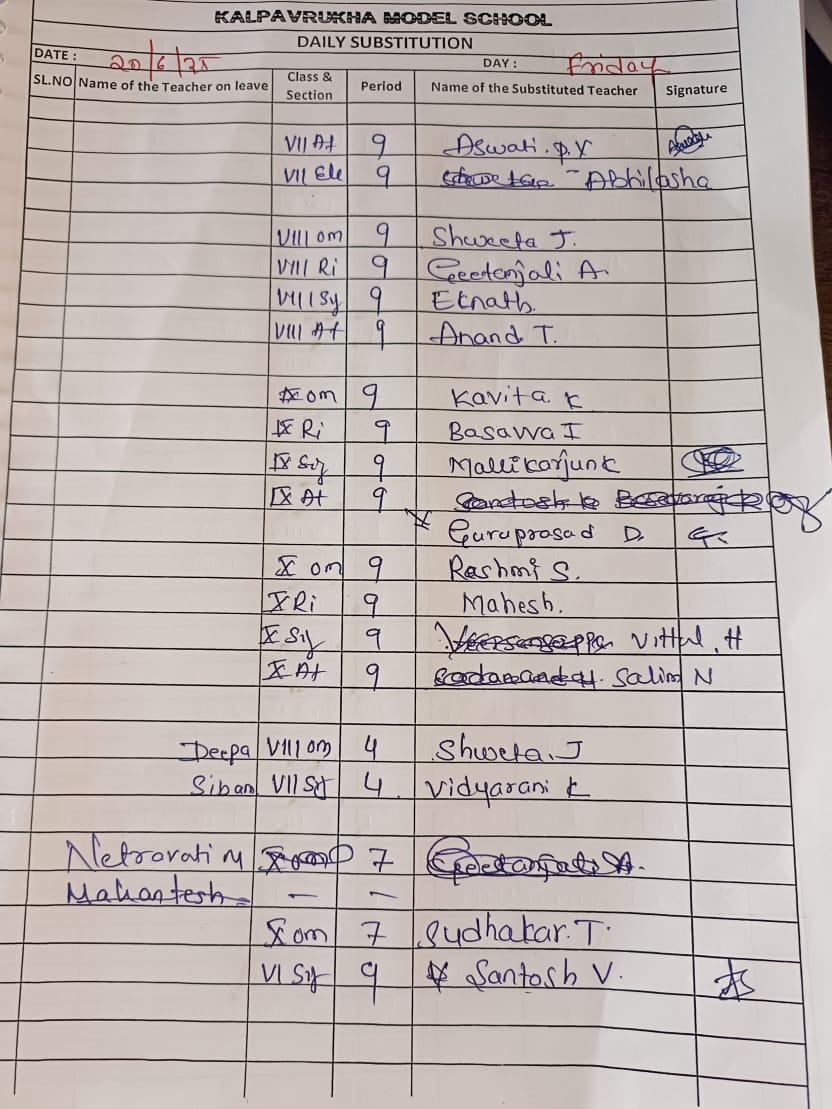 KALPAVRUKHA MODEL SCHOOL
DAILY SUBSTITUTION
DATE : 20/6/25 DAY : Friday
SL.NO Name of the Teacher on leave Class & Section Period Name of the Substituted Teacher Signature
VII At 9 Aswati. P.Y
VII Ele 9 - Abhilasha
VIII om 9 Shweeta J.
VIII Ri 9 Geetanjali A.
VIII Sy 9 Eknath.
VIII At 9 Anand T.
IX om 9 Kavita K
IX Ri 9 Basawa I
IX Sy 9 Mallikarjun K
IX At 9 Santosh K Basavaraj K
Guruprasad D.
X om 9 Rashmi S.
X Ri 9 Mahesh.
X Sy 9 Vittal. H
X At 9 Sadanand H. Salim N
Deepa VIII om 4 Shweta. J
Siban VII Sy 4 Vidyarani K
Netravati M X om 7 Geetanjali A.
Mahantesh — —
X om 7 Sudhakar. T.
VI Sy 9 Santosh V.